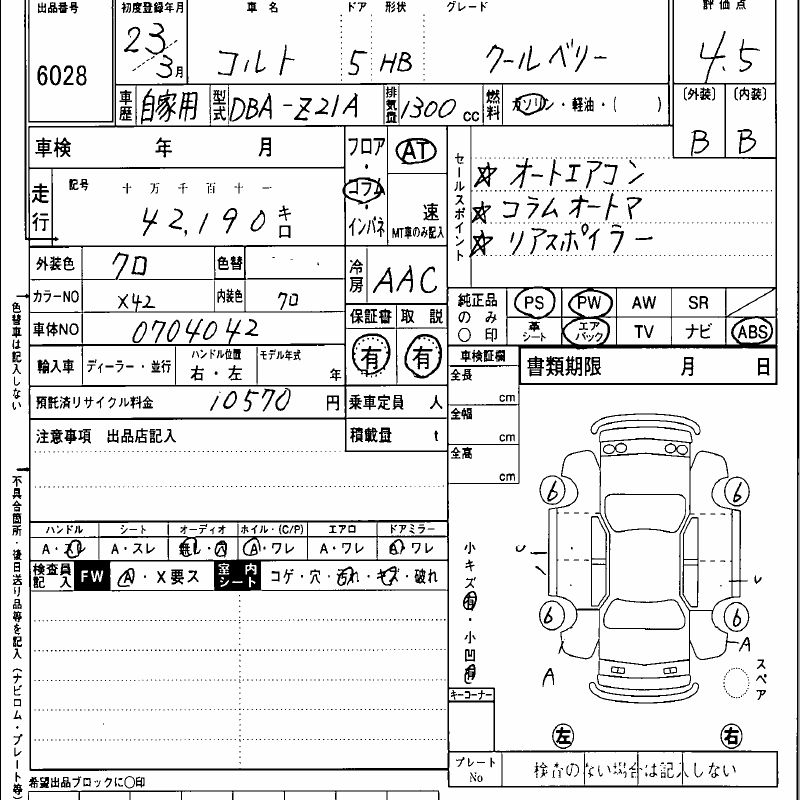 出品番号 初度登録年月 車名 ドア 形状 グレード 評価点
6028 23/3月 コルト 5 HB クールベリー 4.5
車歴 自家用 型式 DBA-Z21A 排気量 1300cc 燃料 ガソリン・軽油・( ) 〔外装〕 〔内装〕
B B
車検 年 月 フロア・コラム・インパネ AT
速
MT車のみ記入
セールスポイント
☆ オートエアコン
☆ コラムオートマ
☆ リアスポイラー
走行 記号 十万千百十一
42,190 キロ
外装色 クロ 色替 冷房 AAC
カラーNO X42 内装色 クロ
車体NO 0704042
保証書 取説
有 有
純正品のみ〇印 PS PW AW SR
革シート エアバック TV ナビ ABS
輸入車 ディーラー・並行 ハンドル位置 右・左 モデル年式 年
車検証欄 書類期限 月 日
全長 cm
全幅 cm
全高 cm
預託済リサイクル料金 10570 円 乗車定員 人
注意事項 出品店記入 積載量 t
ハンドル シート オーディオ ホイル・(C/P) エアロ ドアミラー
A・スレ A・スレ 無し・穴 A・ワレ A・ワレ A・ワレ
検査員記入 FW A・X要ス 室内シート コゲ・穴・汚れ・キズ・破れ
色替車は記入しない
不具合箇所・後日送り品等を記入(ナビロム・プレート等)
小キズ有・小凹有
6 6
6 6
U U
A A
スペア
キーコーナー
左 右
プレートNo 検査のない場合は記入しない
希望出品ブロックに〇印